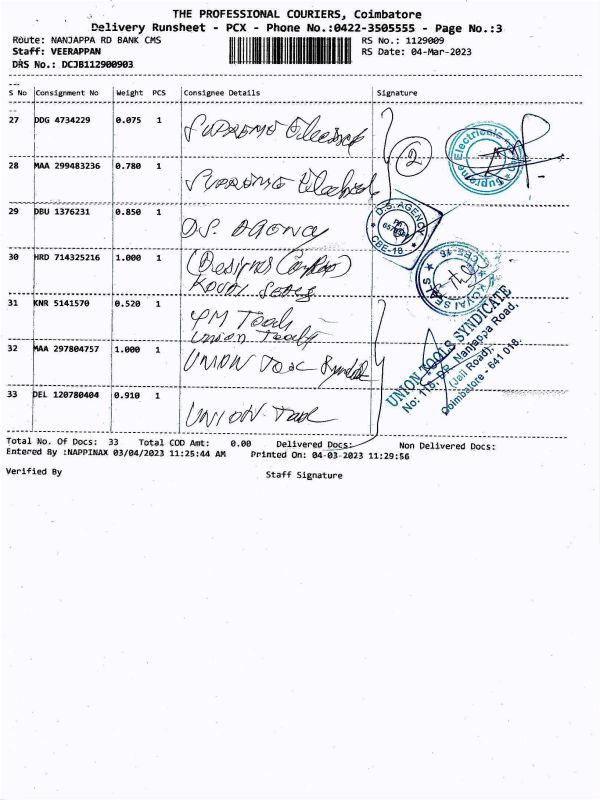 THE PROFESSIONAL COURIERS, Coimbatore
Delivery Runsheet - PCX - Phone No.:0422-3505555 - Page No.:3
Route: NANJAPPA RD BANK CMS RS No.: 1129009
Staff: VEERAPPAN RS Date: 04-Mar-2023
DRS No.: DCJB112900903
S No Consignment No Weight PCS Consignee Details Signature
27 DDG 4734229 0.075 1 SUPREME Electricals
2
Supreme Electricals
28 MAA 299483236 0.780 1 SUPREME Electricals
29 DBU 1376231 0.850 1 D.S. AGENCY
D.S. AGENCY
CBE-18
30 HRD 714325216 1.000 1
KOVAI SEALS
KOVAI SEALS
31 KNR 5141570 0.520 1 Tools
Union Tools
32 MAA 297804757 1.000 1 UNION Tool
33 DEL 120780404 0.910 1 UNION Tool
UNION TOOLS SYNDICATE
No: 118, Nanjappa Road,
(Jail Road),
Coimbatore - 641 018.
Total No. Of Docs: 33 Total COD Amt: 0.00 Delivered Docs: Non Delivered Docs:
Entered By :NAPPINAX 03/04/2023 11:25:44 AM Printed On: 04-03-2023 11:29:56
Verified By Staff Signature